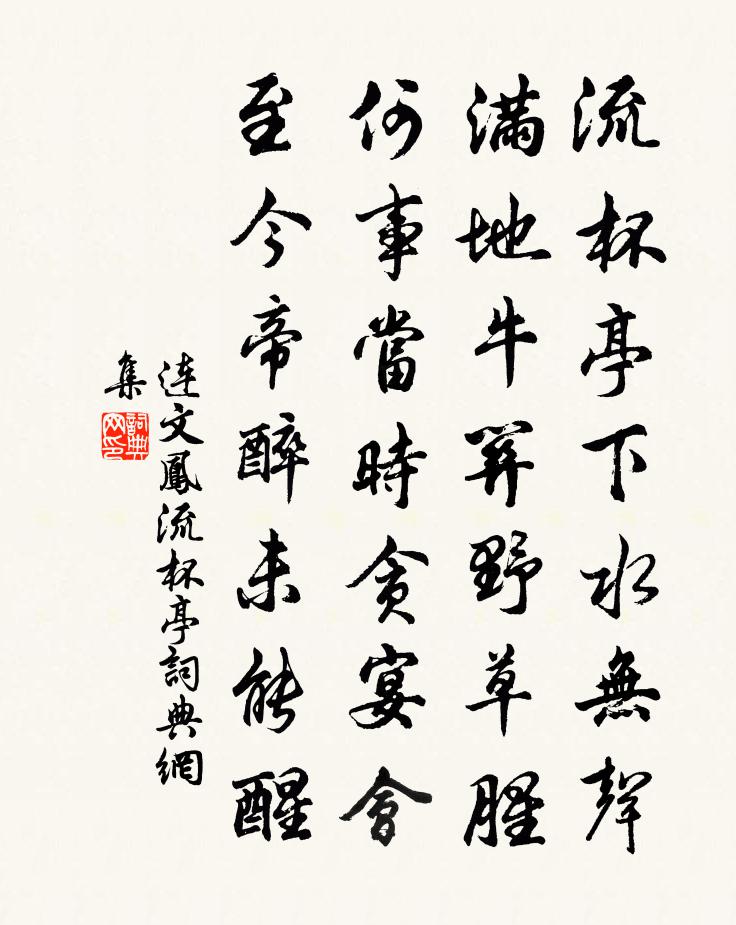 流杯亭下水無聲
滿地牛羊野草腥
何事當時貪宴會
至今帝醉未能醒
連文鳳流杯亭詞典網
集
詞典网印